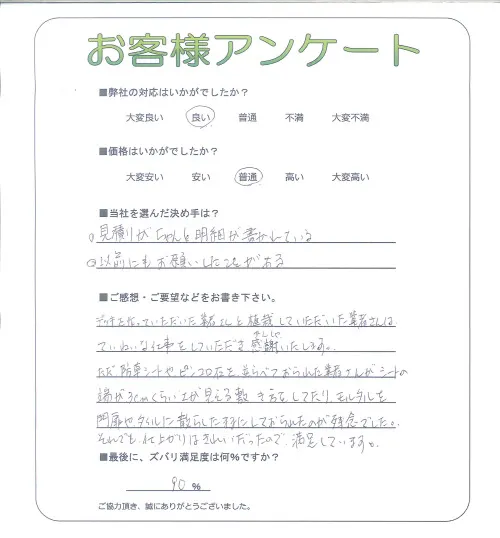 お客様アンケート
■弊社の対応はいかがでしたか？
大変良い 良い 普通 不満 大変不満
■価格はいかがでしたか？
大変安い 安い 普通 高い 大変高い
■当社を選んだ決め手は？
○見積りがちゃんと明細が書かれている
○以前にもお願いしたことがある
■ご感想・ご要望などをお書き下さい。
デッキを作っていただいた業者さんと植栽していただいた業者さんは
かんしゃ
ていねいな仕事をしていただき感謝いたします。
ただ防草シートやピンコロ石を並らべておられた業者さんがシートの
端が3cmくらい土が見える敷き方をしてたり、モルタルを
門扉やタイルに散らしたままにしておられたのが残念でした。
それでも仕上がりはきれいだったので、満足しています。
■最後に、ズバリ満足度は何%ですか？
90 %
ご協力頂き、誠にありがとうございました。